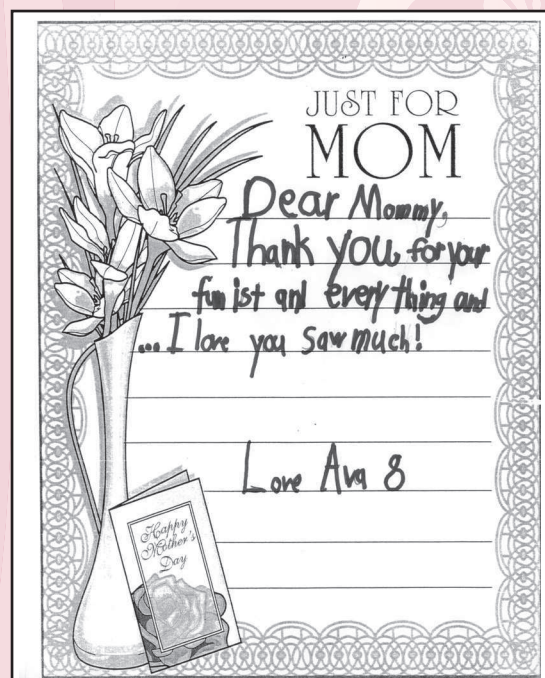 JUST FOR
MOM
Dear Mommy,
Thank you for your
fun ist and everything and
...I love you saw much!
Love Ava 8
Happy
Mother's
Day